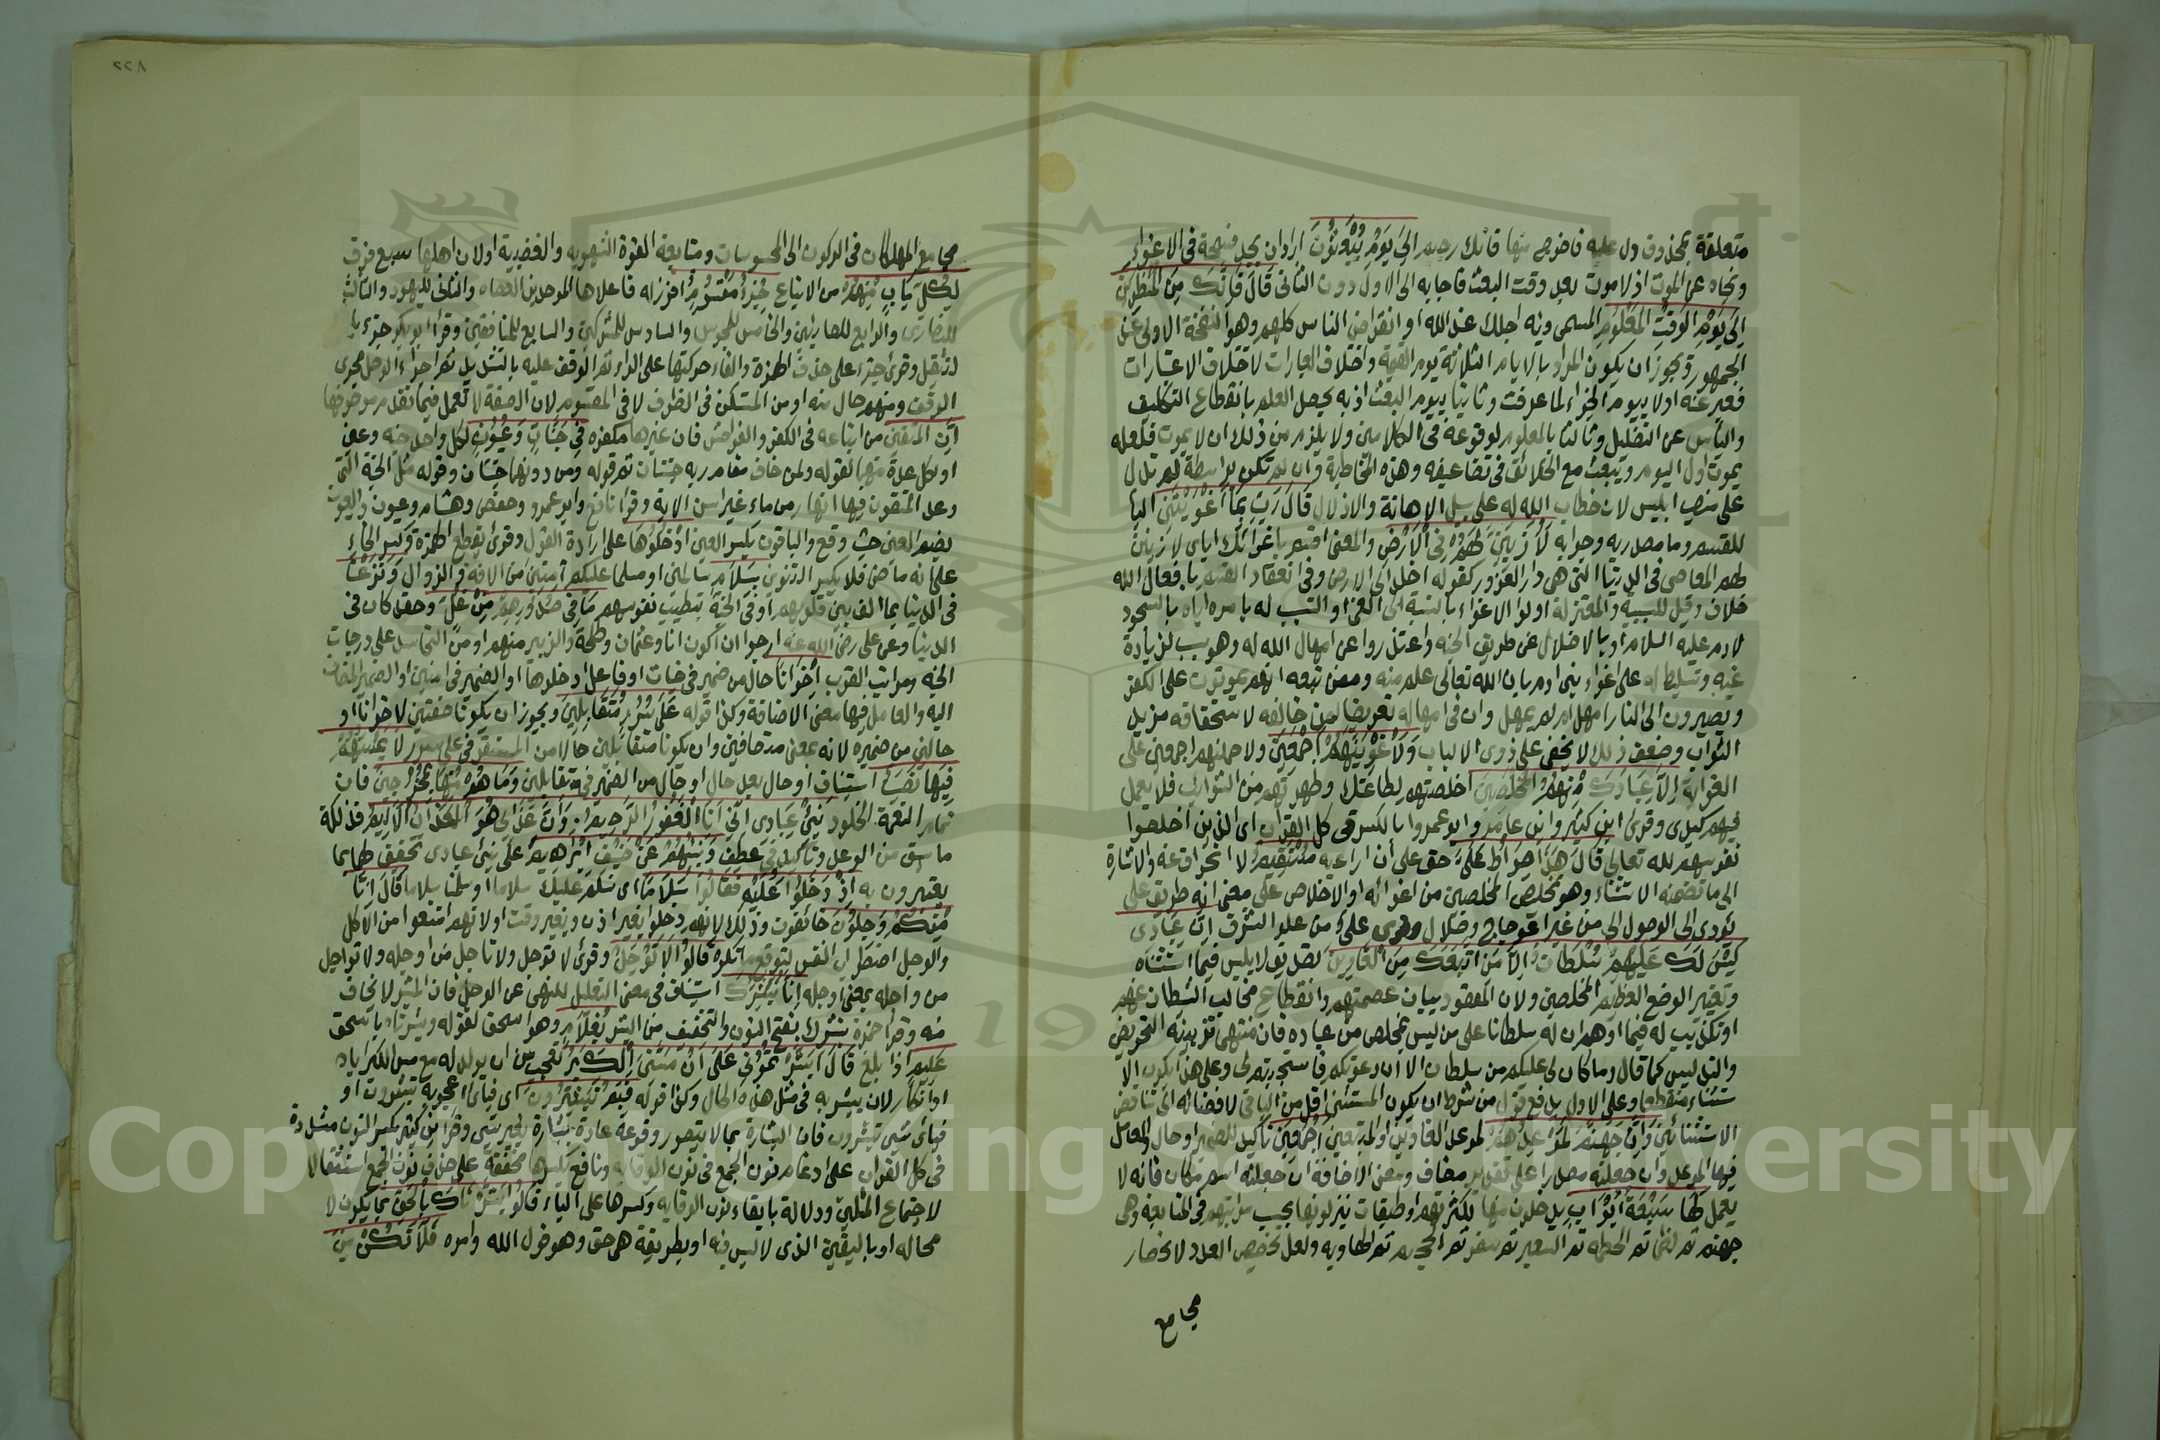 متعلقة بمحذوف دل عليه فاخرج منها فانك رجيم الى يوم يبعثون اراد ان يجد فسحة في الاغواء
ونجاة عن الموت اذ لا موت بعد وقت البعث فاجابه الى الاول دون الثاني قال فانك من المنظرين
الى يوم الوقت المعلوم المسمى فيه اجلك عند الله او انقراض الناس كلهم وهو النفخة الاولى عند
الجمهور ويجوز ان يكون المراد بالايام الثلاثة يوم القيمة واختلاف العبارات لاختلاف الاعتبارات
فعبر عنه اولا بيوم الجزاء لما عرفت وثانيا بيوم البعث اذ به يحصل العلم بانقطاع التكليف
والياس عن التضليل وثالثا بالمعلوم لوقوعه في الكلامين ولا يلزم من ذلك ان لا يموت فلعله
يموت اول اليوم ويبعث مع الخلائق في تضاعيفه وهذه المخاطبة وان لم تكن بواسطة لم تدل
على منصب ابليس لان خطاب الله له على سبيل الاهانة والاذلال قال رب بما اغويتني الباء
للقسم وما مصدرية وجوابه لازينن لهم في الارض والمعنى اقسم باغوائك اياي لازينن
لهم المعاصي في الدنيا التي هي دار الغرور كقوله اخلد الى الارض وفي انعقاد القسم بافعال الله
خلاف وقيل للسببية والمعتزلة اولوا الاغواء بالنسبة الى الغي او التسبب له بامره اياه بالسجود
لادم عليه السلام او بالاضلال عن طريق الجنة واعتذروا عن امهال الله له وهو سبب لزيادة
غيه وتسليط له على اغواء بني ادم بان الله تعالى علم منه وممن تبعه انهم يموتون على الكفر
ويصيرون الى النار امهل او لم يمهل وان في امهاله تعريضا لمن خالفه لاستحقاقه مزيد
الثواب وضعف ذلك لا يخفى على ذوي الالباب ولاغوينهم اجمعين ولاحملنهم اجمعين على
الغواية الا عبادك منهم المخلصين اخلصتهم لطاعتك وطهرتهم من الشوائب فلا يعمل
فيهم كيدي وقرئ ابن كثير وابن عامر وابو عمرو بالكسر في كل القران اي الذين اخلصوا
نفوسهم لله تعالى قال هذا صراط علي حق علي ان اراعيه مستقيم لا انحراف عنه والاشارة
الى ما تضمنه الاستثناء وهو تخلص المخلصين من اغوائه او الاخلاص على معنى انه طريق علي
يؤدي الى الوصول الي من غير اعوجاج وضلال وقرى علي من علو الشرف ان عبادي
ليس لك عليهم سلطان الا من اتبعك من الغاوين تصديق لابليس فيما استثناه
وتغيير الوضع لتعظيم المخلصين ولان المقصود بيان عصمتهم وانقطاع مخالب الشيطان عنهم
او تكذيب له فيما اوهم ان له سلطانا على من ليس بمخلص من عباده فان منتهى تزيينه التحريض
والتدليس كما قال وما كان لي عليكم من سلطان الا ان دعوتكم فاستجبتم لي وعلى هذا يكون الا
ستثناء منقطعا وعلى الاول يدفع قول من شرط ان يكون المستثنى اقل من الباقي لافضائه الى تناقض
الاستثنائين وان جهنم لموعدهم لموعد الغاوين او المتبعين اجمعين تاكيد للضمير او حال والعامل
فيها الموعد ان جعلته مصدرا على تقدير مضاف ومعنى الاضافة ان جعلته اسم مكان فانه لا
يعمل لها سبعة ابواب يدخلون منها لكثرتهم او طبقات ينزلونها بحسب مراتبهم في المتابعة وهي
جهنم ثم لظى ثم الحطمة ثم السعير ثم سقر ثم الجحيم ثم الهاوية ولعل تخصيص العدد لانحصار
مجامع
٢٢٨
مجامع المهلكات في الركون الى المحسوسات ومتابعة القوة الشهوية والغضبية اولان اهلها سبع فرق
لكل باب منهم من الاتباع جزء مقسوم افرز له فاعلاها للموحدين العصاة والثاني لليهود والثالث
للنصارى والرابع للصابئين والخامس للمجوس والسادس للمشركين والسابع للمنافقين وقرا ابو بكر جزء با
لتثقيل وقرئ جز على حذف الهمزة والقاء حركتها على الزاء ثم الوقف عليه بالتشديد ثم اجراء الوصل مجرى
الوقف ومنهم حال منه او من المستكن في الظرف لا في المقسوم لان الصفة لا تعمل فيما تقدم موصوفها
ان المتقين من اتباعه في الكفر والفواحش فان غيرها مكفرة في جنات وعيون لكل واحد جنة وعين
او لكل عدة منهما لقوله ولمن خاف مقام ربه جنتان ثم قوله ومن دونهما جنتان وقوله مثل الجنة التي
وعد المتقون فيها انهار من ماء غير اسن الاية وقرا نافع وابو عمرو وحفص وهشام وعيون والعيون
بضم العين حيث وقع والباقون بكسر العين ادخلوها على ارادة القول وقرئ بقطع الهمزة وكسر الخاء
على انه ماض فلا يكسر التنوين بسلام سالمين او مسلما عليكم امنين من الافة والزوال ونزعنا
في الدنيا بما الف بين قلوبهم او في الجنة بتطييب نفوسهم ما في صدورهم من غل من حقد كان في
الدنيا وعن علي رضي الله عنه ارجوا ان اكون انا وعثمان وطلحة والزبير منهم او من التحاسد على درجات
الجنة ومراتب القرب اخوانا حال من ضمير في جنات او فاعل ادخلوها او الضمير في امنين او الضمير المضاف
اليه والعامل فيها معنى الاضافة وكذا قوله على سرر متقابلين ويجوز ان يكونا صفتين لاخوانا او
حالين من ضميره لانه بمعنى متصافين وان يكون متقابلين حالا من المستقر في على سرر لا يمسهم
فيها نصب استيناف او حال بعد حال او حال من الضمير في متقابلين وما هم منها بمخرجين فان
تمام النعمة الخلود نبئ عبادي اني انا الغفور الرحيم وان عذابي هو العذاب الاليم فذلكة
ما سبق من الوعد وتاكيد في عطف ونبئهم عن ضيف ابراهيم على نبئ عبادي تحقيق لهما بما
يعتبرون به اذ دخلوا عليه فقالوا سلاما اي نسلم عليك سلاما او سلمنا سلاما قال انا
منكم وجلون خائفون وذلك لانهم دخلوا بغير اذن وبغير وقت او لانهم امتنعوا من الاكل
والوجل اضطراب النفس لتوقع مكره قالوا لا توجل وقرئ لا توجل ولا تاجل من اوجله ولا تواجل
من واجله بمعنى اوجله انا نبشرك استيناف في معنى التعليل للنهي عن الوجل فان المبشر لا يخاف
منه وقرا حمزة نبشرك بفتح النون والتخفيف من البشر بغلام وهو اسحق لقوله وبشرناه باسحق
عليم اذا بلغ قال ابشرتموني على ان مسني الكبر تعجب من ان يولد له مع مس الكبر اياه
او انكار لان يبشر به في مثل هذه الحال وكذا قوله فبم تبشرون اي فباي اعجوبة تبشرون او
فباي شئ تبشرون فان البشارة بما لا يتصور وقوعه عادة بشارة بغير شئ وقرا ابن كثير بكسر النون مشددة
في كل القران على ادغام نون الجمع في نون الوقاية ونافع بكسرها مخففة على حذف نون الجمع استثقالا
لاجتماع المثلين ودلالة بابقاء نون الوقاية وكسرها على الياء قالوا بشرناك بالحق بما يكون لا
محالة او باليقين الذي لا لبس فيه او بطريقة هي حق وهو قول الله وامره فلا تكن من